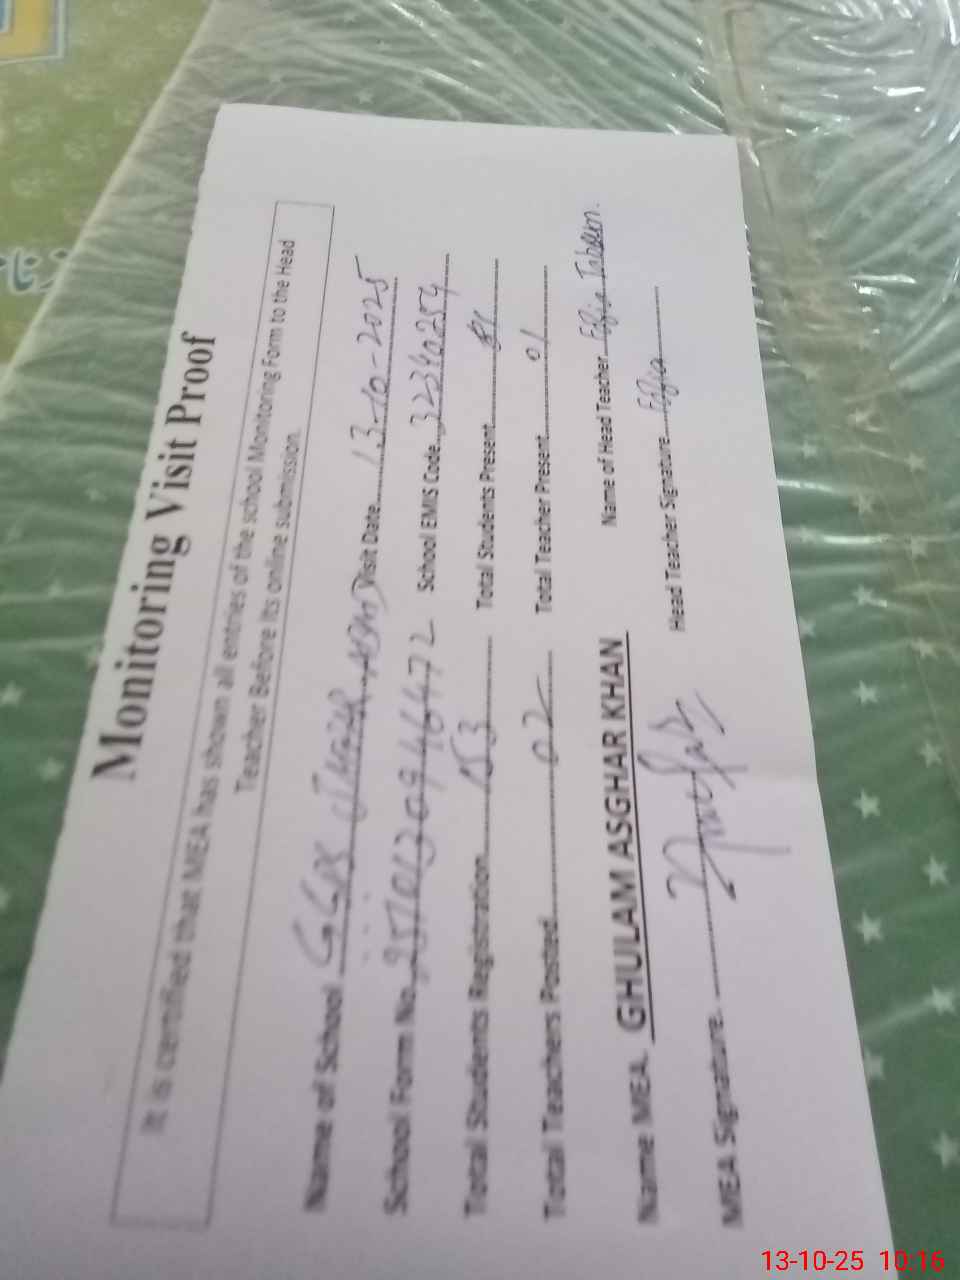 Monitoring Visit Proof
It is certified that MEA has shown all entries of the school Monitoring Form to the Head
Teacher Before its online submission.
Name of School GGPS Visit Date 13-10-2025
School Form No. School EMIS Code 32340254
Total Students Registration 153 Total Students Present
Total Teachers Posted 02 Total Teacher Present 01
Name MEA. GHULAM ASGHAR KHAN Name of Head Teacher Tabsum.
MEA Signature. Head Teacher Signature
13-10-25 10:16